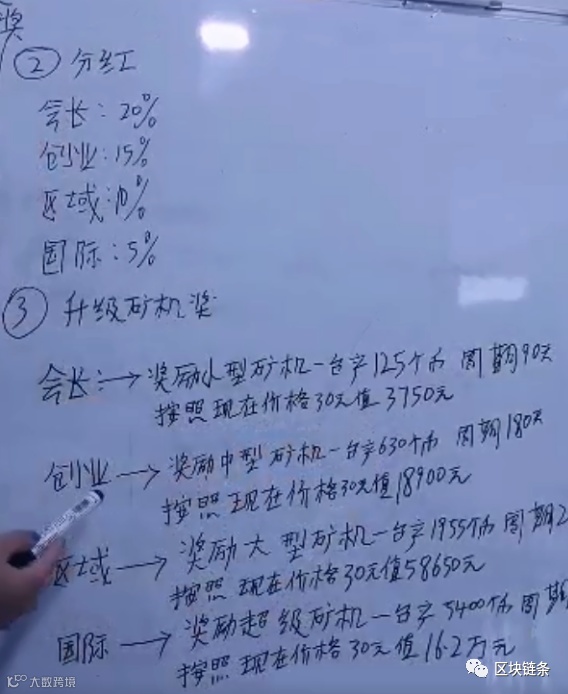 奖
② 分红
会长：20%
创业：15%
区域：10%
国际：5%
③ 升级矿机奖
会长：→奖励小型矿机一台产125个币 周期90天
按照现在价格30元值3750元
创业→奖励中型矿机一台产630个币 周期180天
按照现在价格30元值18900元
区域→奖励大型矿机一台产1955个币 周期2
按照现在价格30元值58650元
国际→奖励超级矿机一台产5400个币 周期
按照现在价格30元值16.2万元
区块链条
大数跨境